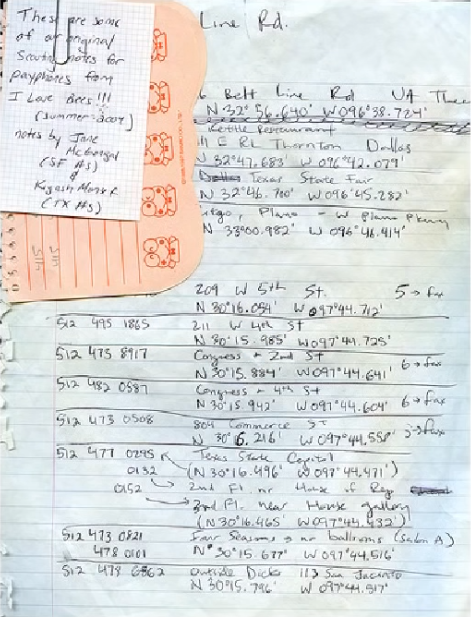 These are some
of our original
Scouting notes for
payphones from
I Love Bees!!!
(summer 2004)
notes by Jane
McGonigal
(SF #s)
&
(TX #s)
Line Rd.
6 Belt Line Rd
N 32° 56.640' W 096° 38.724'
Kettle Restaurant
111 E RL Thornton Dallas
N 32° 47.683' W 096° 42.079'
Texas State Fair
N 32° 46.700' W 096° 45.282'
Plano - W Plano Pkwy
N 33°00.982' W 096°46.414'
209 W 5th St. 5 → fax
N 30°16.054' W 097°44.712'
512 495 1865 211 W 4th St
N 30°15.985' W 097°44.725'
512 473 8917 Congress + 2nd St
N 30°15.884' W 097°44.641' 6 → fax
512 482 0587 Congress + 4th St
N 30°15.942' W 097°44.604' 6 → fax
512 473 0508 804 Commerce St
N 30°6.216' W 097°44.558' 3 → fax
512 477 0295 Texas State Capital
0132 (N 30°16.496' W 097°44.471')
0152 2nd Fl. nr House of Rep
3rd Fl. near House gallery
(N 30°16.465' W 097°44.432')
512 473 0821 Four Seasons nr ballrooms (Salon A)
478 0101 N 30°15.677' W 097°44.516'
512 478 6362 outside Dicks 113 San Jacinto
N 30°15.796' W 097°44.517'